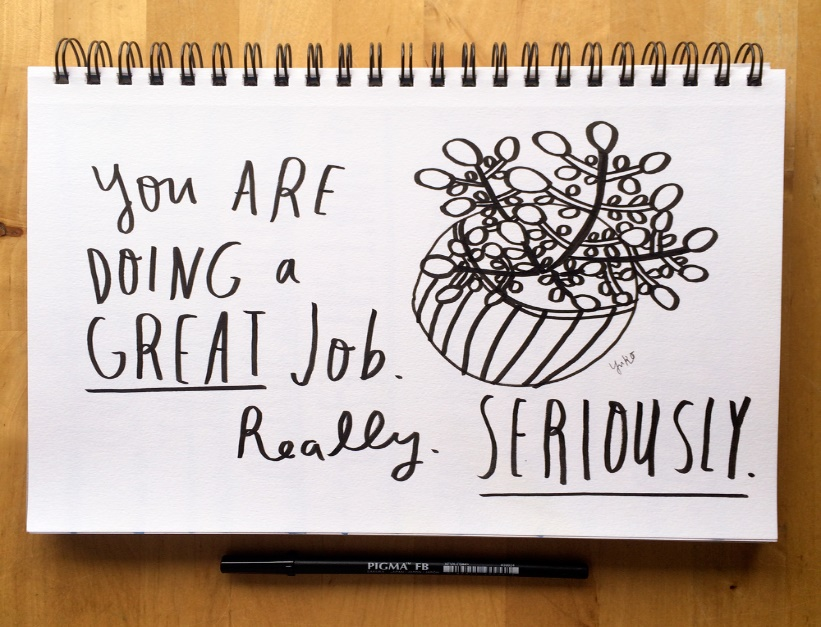 you ARE
DOING a
GREAT Job.
Really. SERIOUSLY.
yuko
PIGMA™ FB